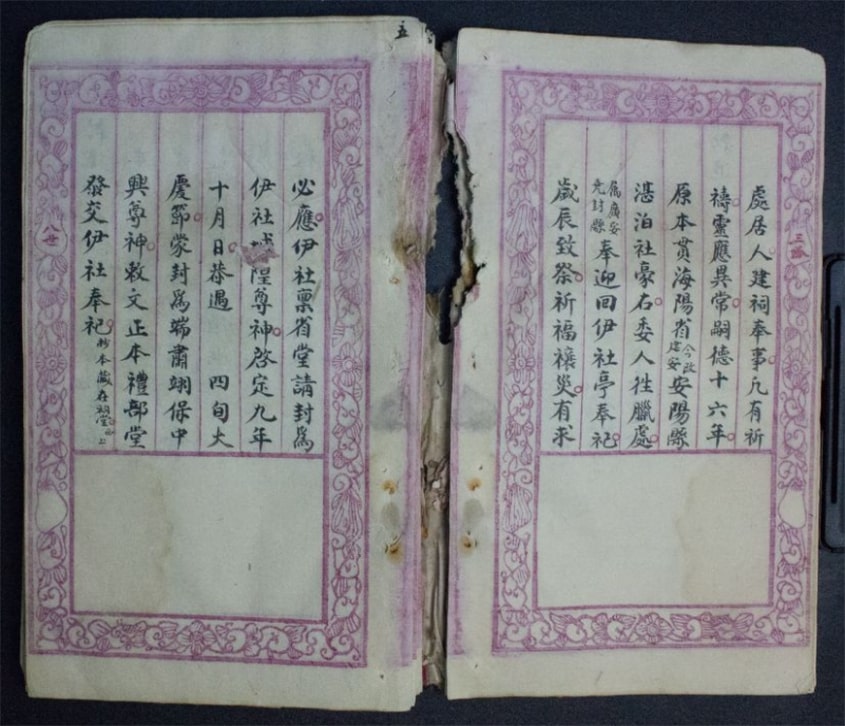 處居人建祠奉事凡有祈
禱靈應異常嗣德十六年
原本貫海陽省今改建安安陽縣
湛泊社豪右委人往臘處
屬廣安尭封縣奉迎回伊社亭奉祀
歲辰致祭祈福禳災有求
五
必應伊社稟省堂請封爲
伊社城隍尊神啓定九年
十月日恭遇 四旬大
慶節蒙封爲端肅翊保中
興尊神敕文正本禮部堂
發交伊社奉祀抄本藏在祠堂
八世